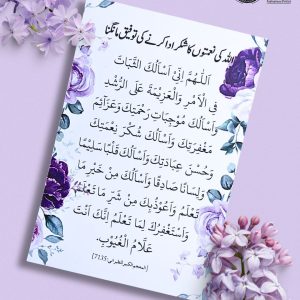 اللہ کی نعمتوں کا شکر ادا کرنے کی توفیق مانگنا
اَللّٰهُمَّ اِنِّيْ اَسْاَلُكَ الثَّبَاتَ
فِي الْاَمْرِ وَالْعَزِيْمَةَ عَلَى الرُّشْدِ
وَاَسْاَلُكَ مُوْجِبَاتِ رَحْمَتِكَ وَعَزَآئِمَ
مَغْفِرَتِكَ وَاَسْاَلُكَ شُكْرَ نِعْمَتِكَ
وَحُسْنَ عِبَادَتِكَ وَاَسْاَلُكَ قَلْبًا سَلِيْمًا
وَلِسَانًا صَادِقًا وَاَسْاَلُكَ مِنْ خَيْرِ مَا
تَعْلَمُ وَاَعُوْذُبِكَ مِنْ شَرِّ مَا تَعْلَمُ
وَاَسْتَغْفِرُكَ لِمَا تَعْلَمُ اِنَّكَ اَنْتَ
عَلَّامُ الْغُيُوْبِ.
[المعجم الكبير للطبراني: 7135]